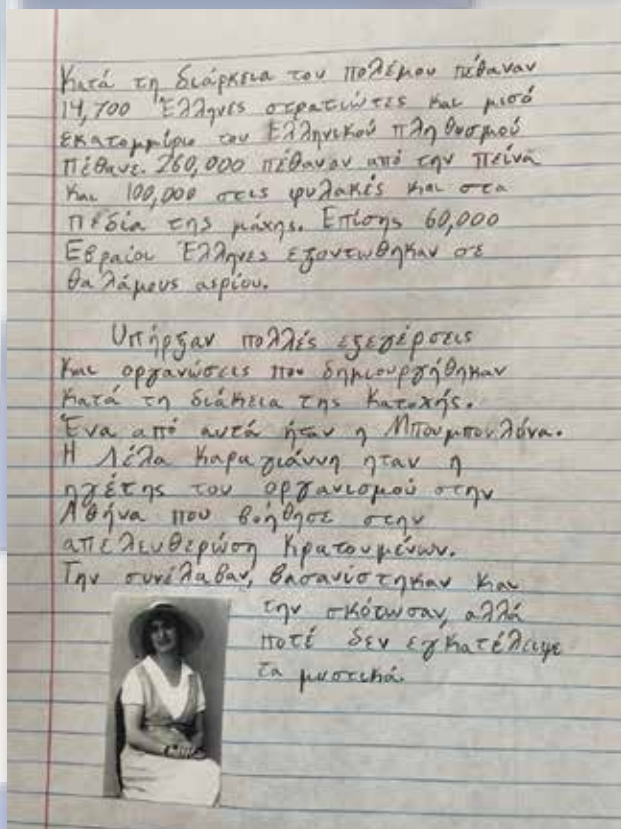 Κατά τη διάρκεια του πολέμου πέθαναν
14,700 Έλληνες στρατιώτες και μισό
εκατομμίριο του Ελληνικού πληθυσμού
πέθανε. 260,000 πέθαναν από την πείνα
και 100,000 στις φυλακές και στα
πεδία της μάχης. Επίσης 60,000
Εβραίοι Έλληνες εξοντωθηκαν σε
θαλάμους αερίου.
Υπήρξαν πολλές εξεγέρσεις
και οργανώσεις που δημιουργήθηκαν
κατά τη διάκεια της Κατοχής.
Ένα από αυτά ήταν η Μπουμπουλόνα.
Η Λέλα Καραγιάννη ηταν η
ηγέτης του οργανισμού στην
Αθήνα που βοήθησε στην
απελευθερώση κρατουμένων.
Την συνέλαβαν, βασανίστηκαν και
την σκότωσαν, αλλά
ποτέ δεν εγκατέλειψε
τα μυστικά.